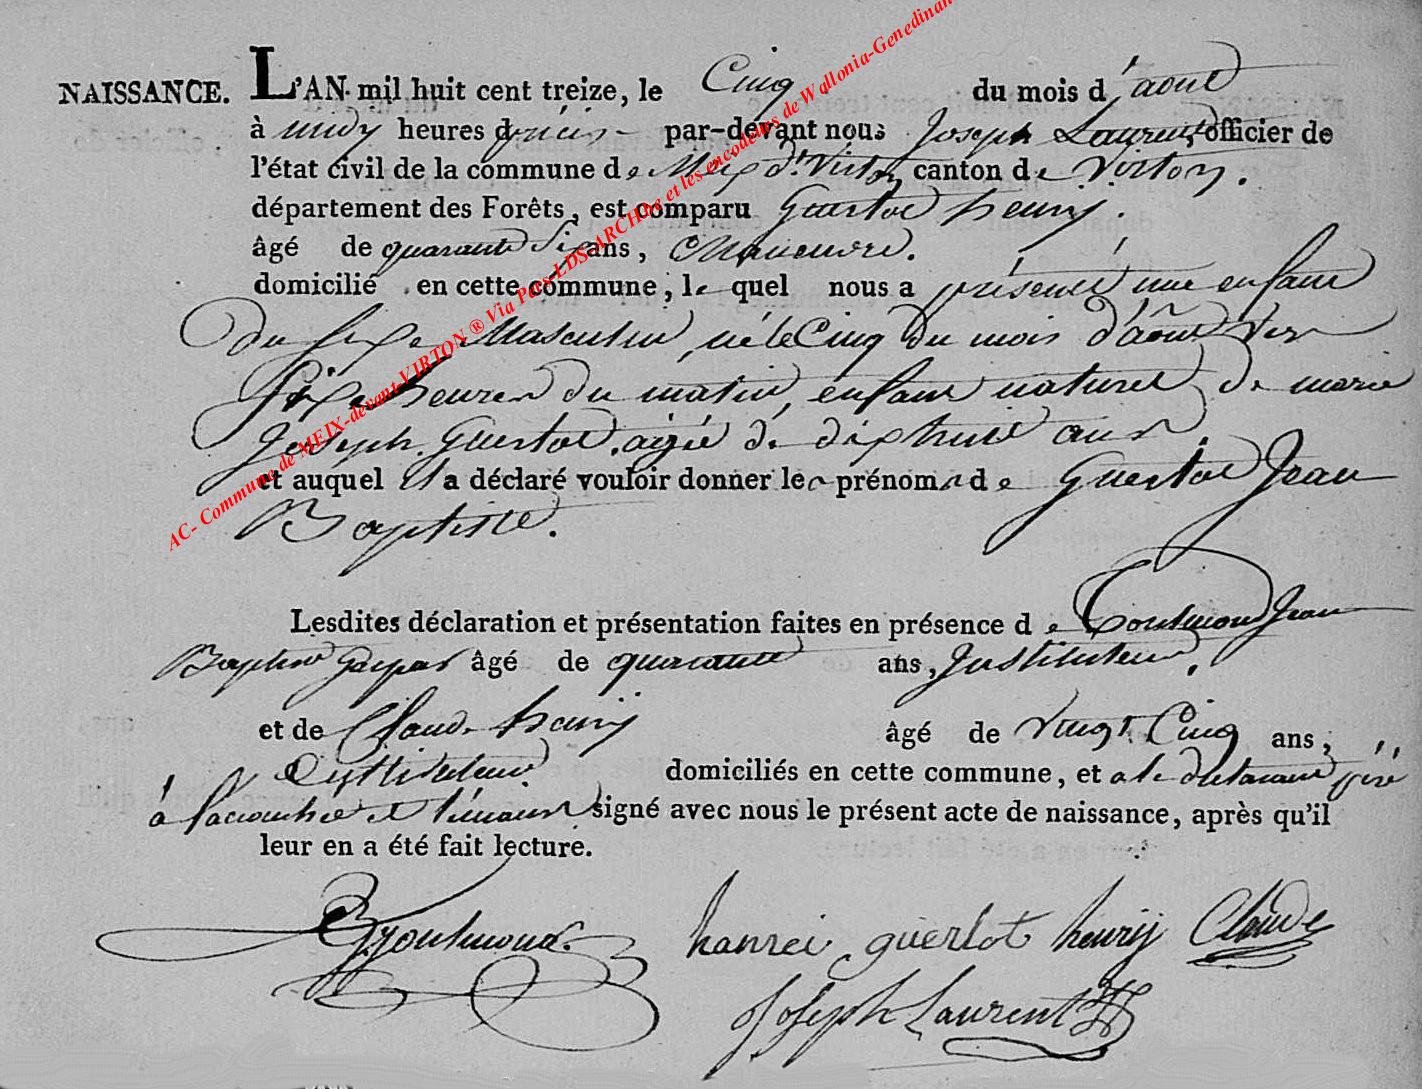 NAISSANCE. L'AN mil huit cent treize, le Cinq du mois d'aout
à midy heures précis par-devant nous Joseph Laurent officier de
l'état civil de la commune de Meix dt Virton canton de Virton.
département des Forêts, est comparu Guerlot henry.
âgé de quarante Six ans,
domicilié en cette commune, lequel nous a présenté une enfant
du sexe Masculin, né le Cinq du mois d'aôut ver
Six heures du matin, enfant naturel de marie
Joseph Guerlot, agée de dixhuit ans
et auquel il a déclaré vouloir donner les prénoms de Guerlot Jean
Baptiste.
Lesdites déclaration et présentation faites en présence de Toulmond Jean
Baptiste Gaspar âgé de quarante ans, Justituteur.
et de Claude henry âgé de Vingt Cinq ans,
domiciliés en cette commune, et a le declarant père
à l'acouchée et témoins signé avec nous le présent acte de naissance, après qu'il
leur en a été fait lecture.
Toulmond. hanrei guerlot henrij Claude
Joseph Laurent
AC- Commune de MEIX-devant-VIRTON ® Via Pers-LDS-ARCHbe et les encodeurs de Wallonia-Genedinan